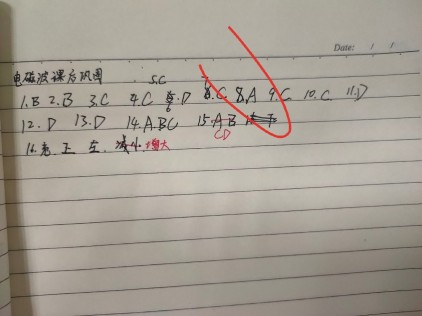 Date: / /
电磁波课后巩固 5.C
1.B 2.B 3.C 4.C 6.D 7.C 8.A 9.C 10.C 11.D
12.D 13.D 14.ABC 15.AB
CD
16. 正 左 减小 增大